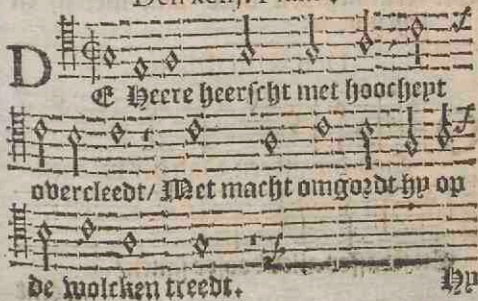 Den xciij. Psalm
DE Heere heerscht met hoocheyt
overcleedt/ Met macht omgordt hy op
de wolcken treedt. Hy